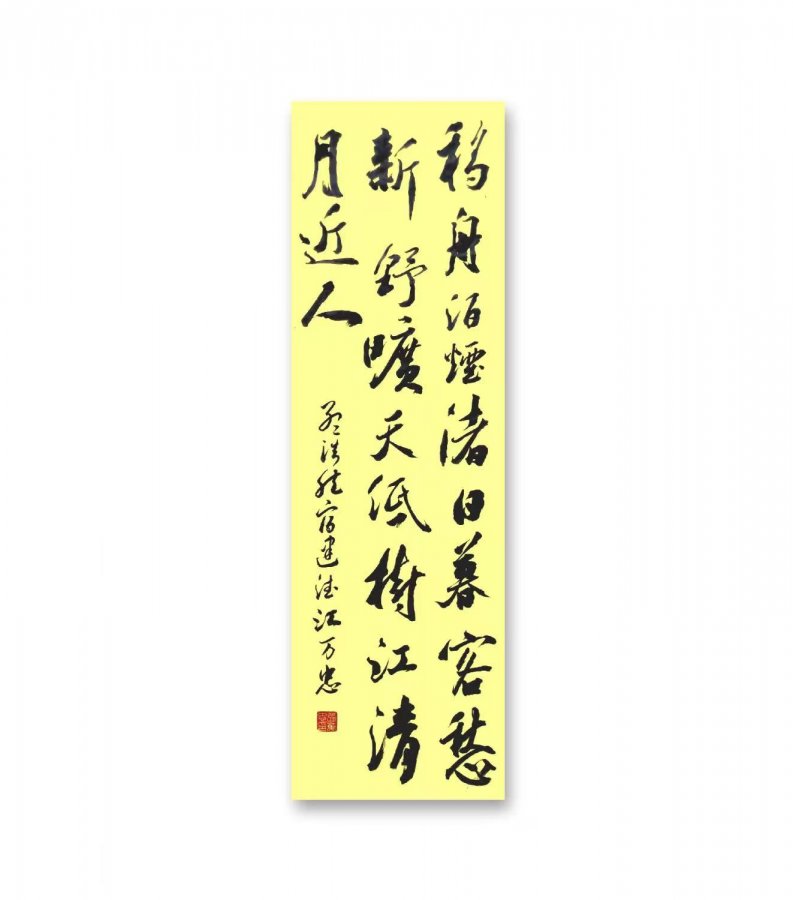 移舟泊煙渚日暮客愁
新野曠天低樹江清
月近人
孟浩然宿建德江万忠